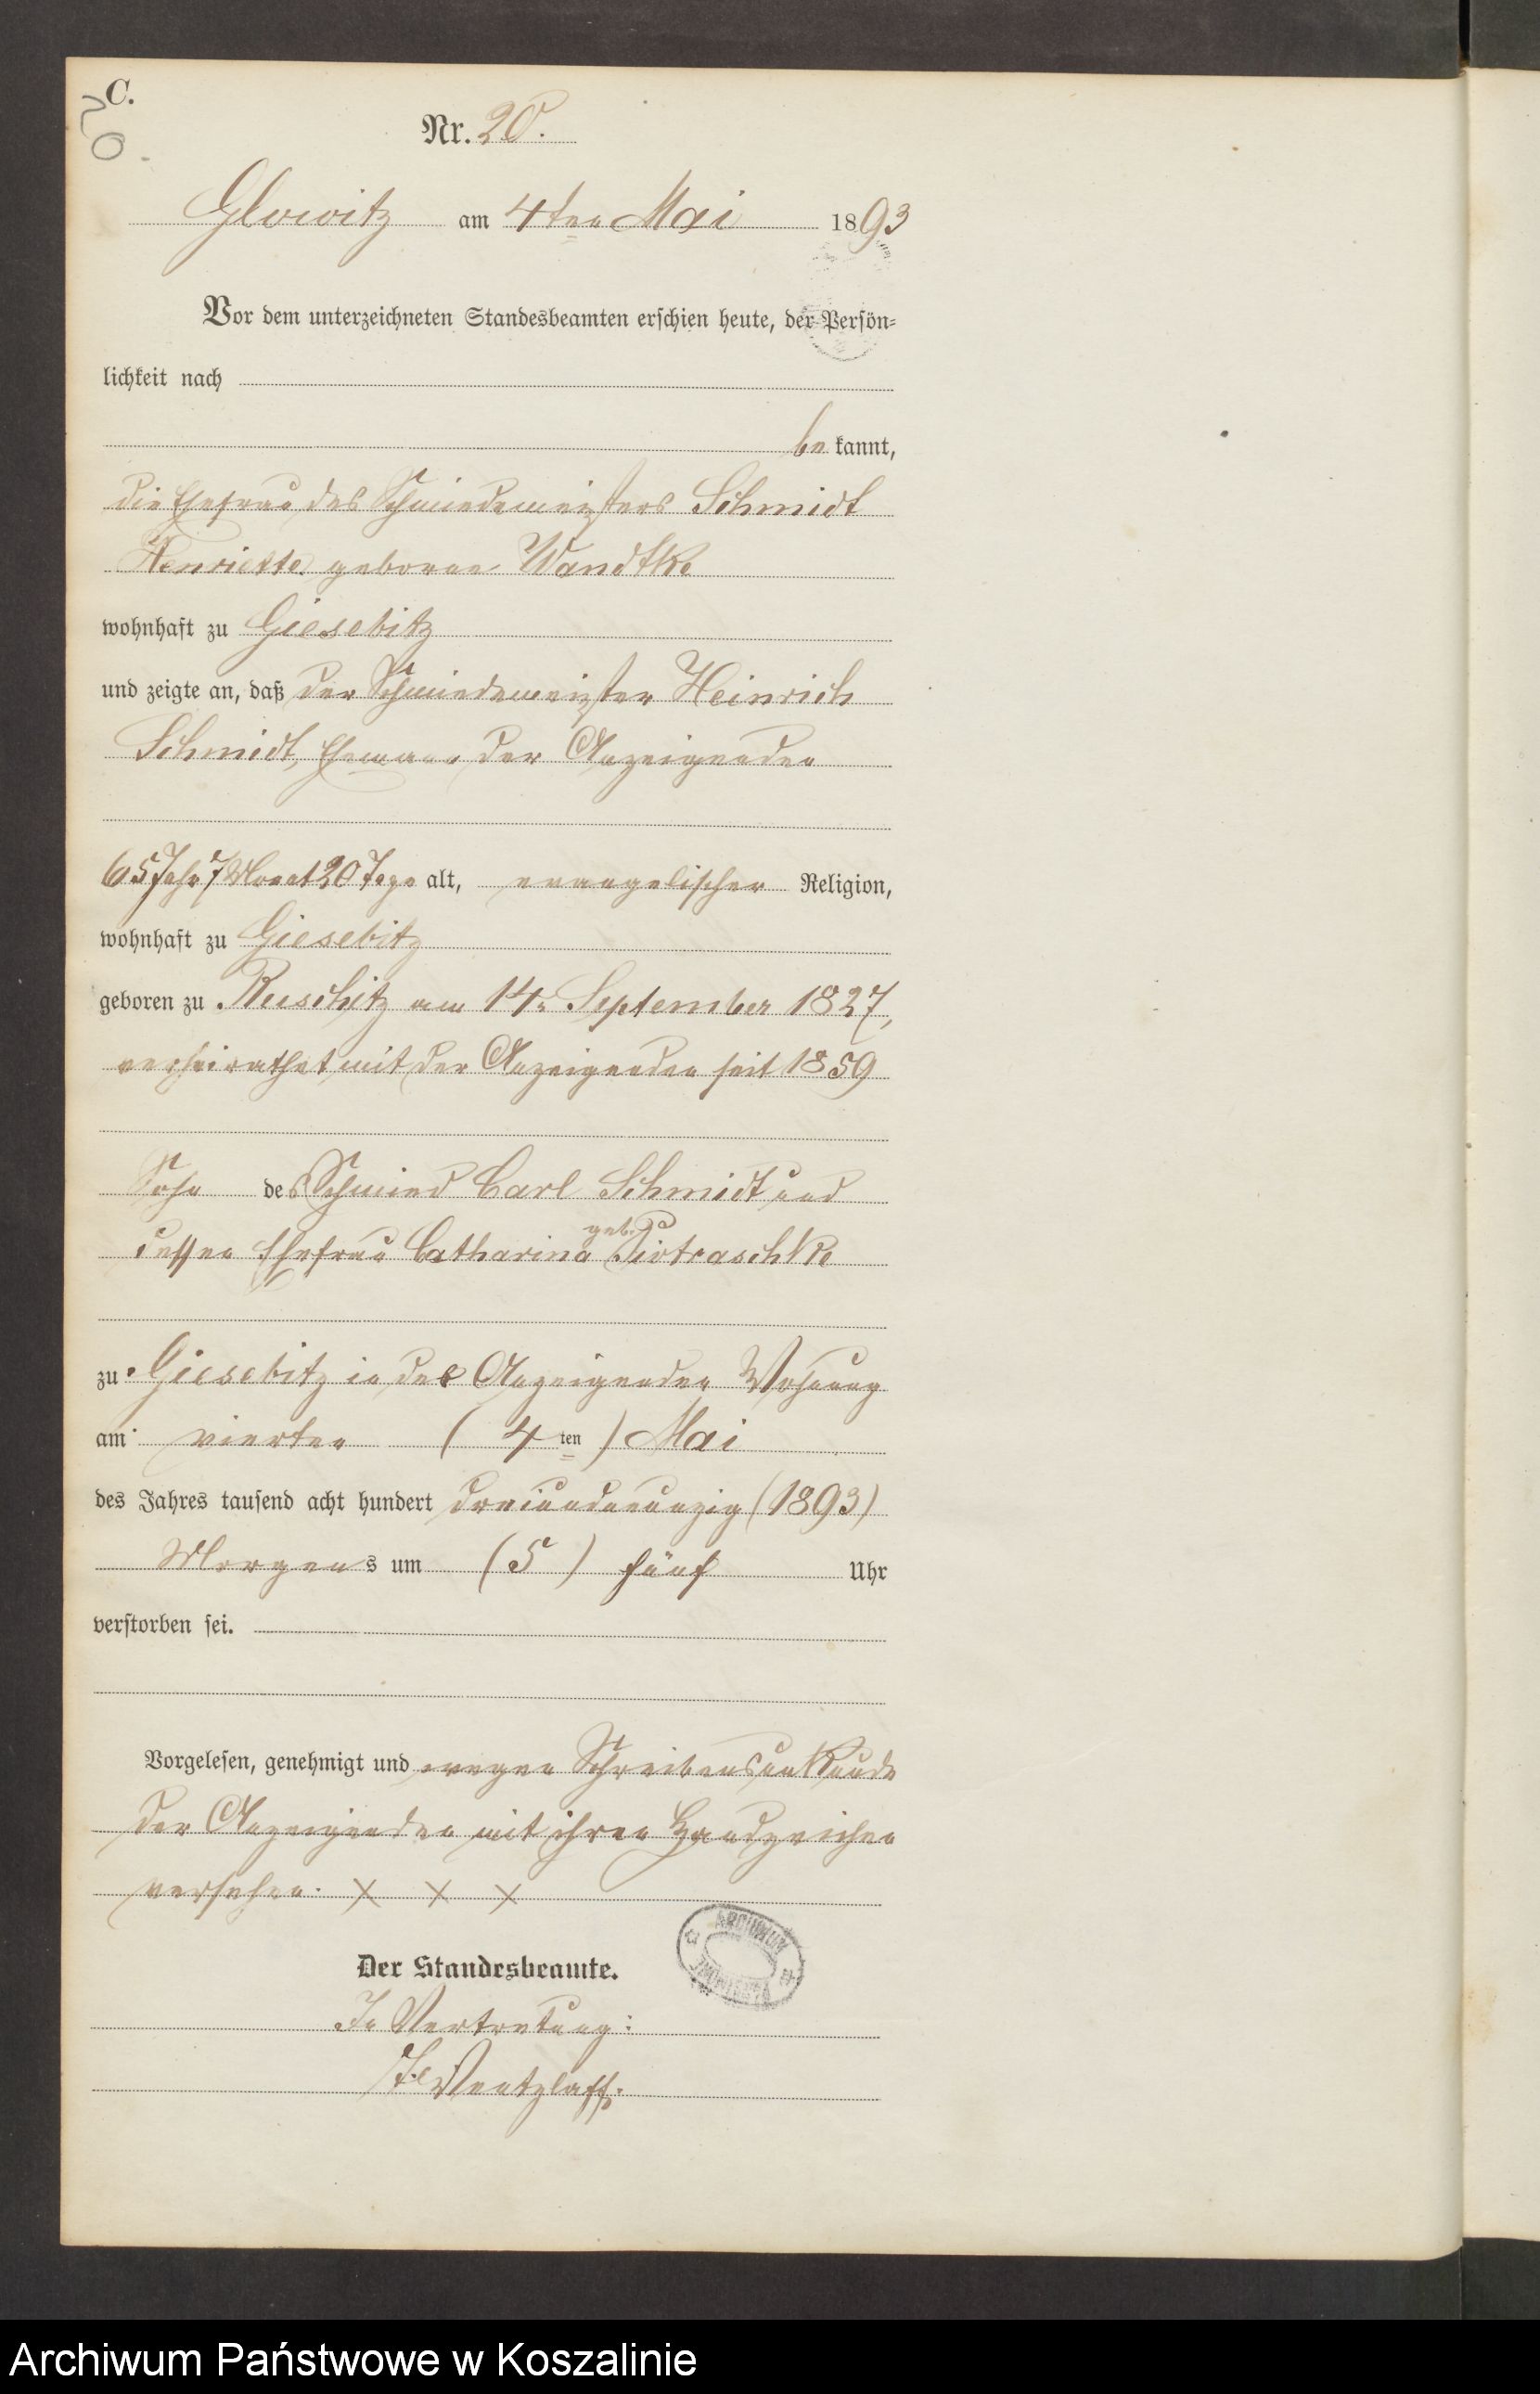 C.
20.
Nr. 20.
Glowitz am 4ten Mai 1893
Vor dem unterzeichneten Standesbeamten erschien heute, der Persön-
lichkeit nach
be kannt,
die Ehefrau des Schmiedemeisters Schmidt
Henriette geborne Wandtke
wohnhaft zu Giesebitz
und zeigte an, daß der Schmiedemeister Heinrich
Schmidt, Ehemann der Anzeigenden
65 Jahr 7 Monat 20 Tage alt, evangelischer Religion,
wohnhaft zu Giesebitz
geboren zu Ruschitz am 14. September 1827,
verheirathet mit der Anzeigenden seit 1859
Sohn des Schmied Carl Schmidt und
dessen Ehefrau Catharina geb. Piotraschke
zu Giesebitz in der Anzeigenden Wohnung
am vierten (4ten) Mai
des Jahres tausend acht hundert dreiundneunzig (1893)
Morgens um (5) fünf Uhr
verstorben sei.
Vorgelesen, genehmigt und wegen Schreibensunkunde
der Anzeigenden mit ihren Handzeichen
versehen. X X X
ARCHIWUM
Der Standesbeamte.
In Vertretung:
Wentzlaff.
Archiwum Państwowe w Koszalinie